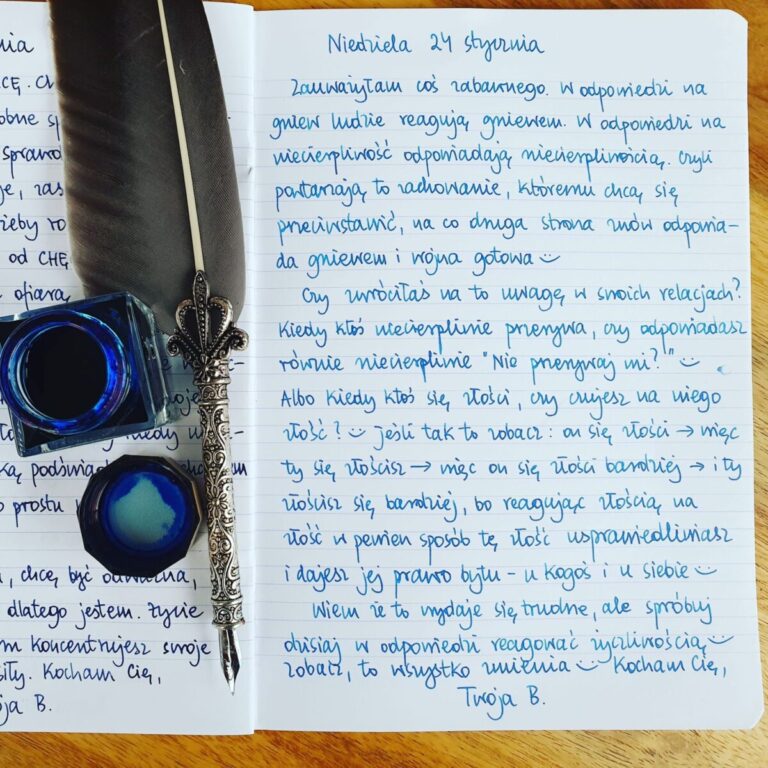 nia
CĘ. Ch
obne sp
sprawd
je, zas
żeby ro
od CHĘ
ofiarą
kiedy w
ką podświad
o prostu
, chcę być odważna,
dlatego jestem. Życie
m koncentrujesz swoje
siły. Kocham Cię,
ja B.
Niedziela 24 stycznia
Zauważyłam coś zabawnego. W odpowiedzi na
gniew ludzie reagują gniewem. W odpowiedzi na
niecierpliwość odpowiadają niecierpliwością. Czyli
powtarzają to zachowanie, któremu chcą się
przeciwstawić, na co druga strona znów odpowia-
da gniewem i wojna gotowa
Czy zwróciłaś na to uwagę w swoich relacjach?
Kiedy ktoś niecierpliwie przerywa, czy odpowiadasz
równie niecierpliwie "Nie przerywaj mi?"
Albo kiedy ktoś się złości, czy czujesz na niego
złość? Jeśli tak to zobacz: on się złości → więc
ty się złościsz → więc on się złości bardziej → i ty
złościsz się bardziej, bo reagując złością na
złość w pewien sposób tę złość usprawiedliwiasz
i dajesz jej prawo bytu - u kogoś i u siebie
Wiem że to wydaje się trudne, ale spróbuj
dzisiaj w odpowiedzi reagować życzliwością
zobacz, to wszystko zmienia Kocham Cię,
Twoja B.